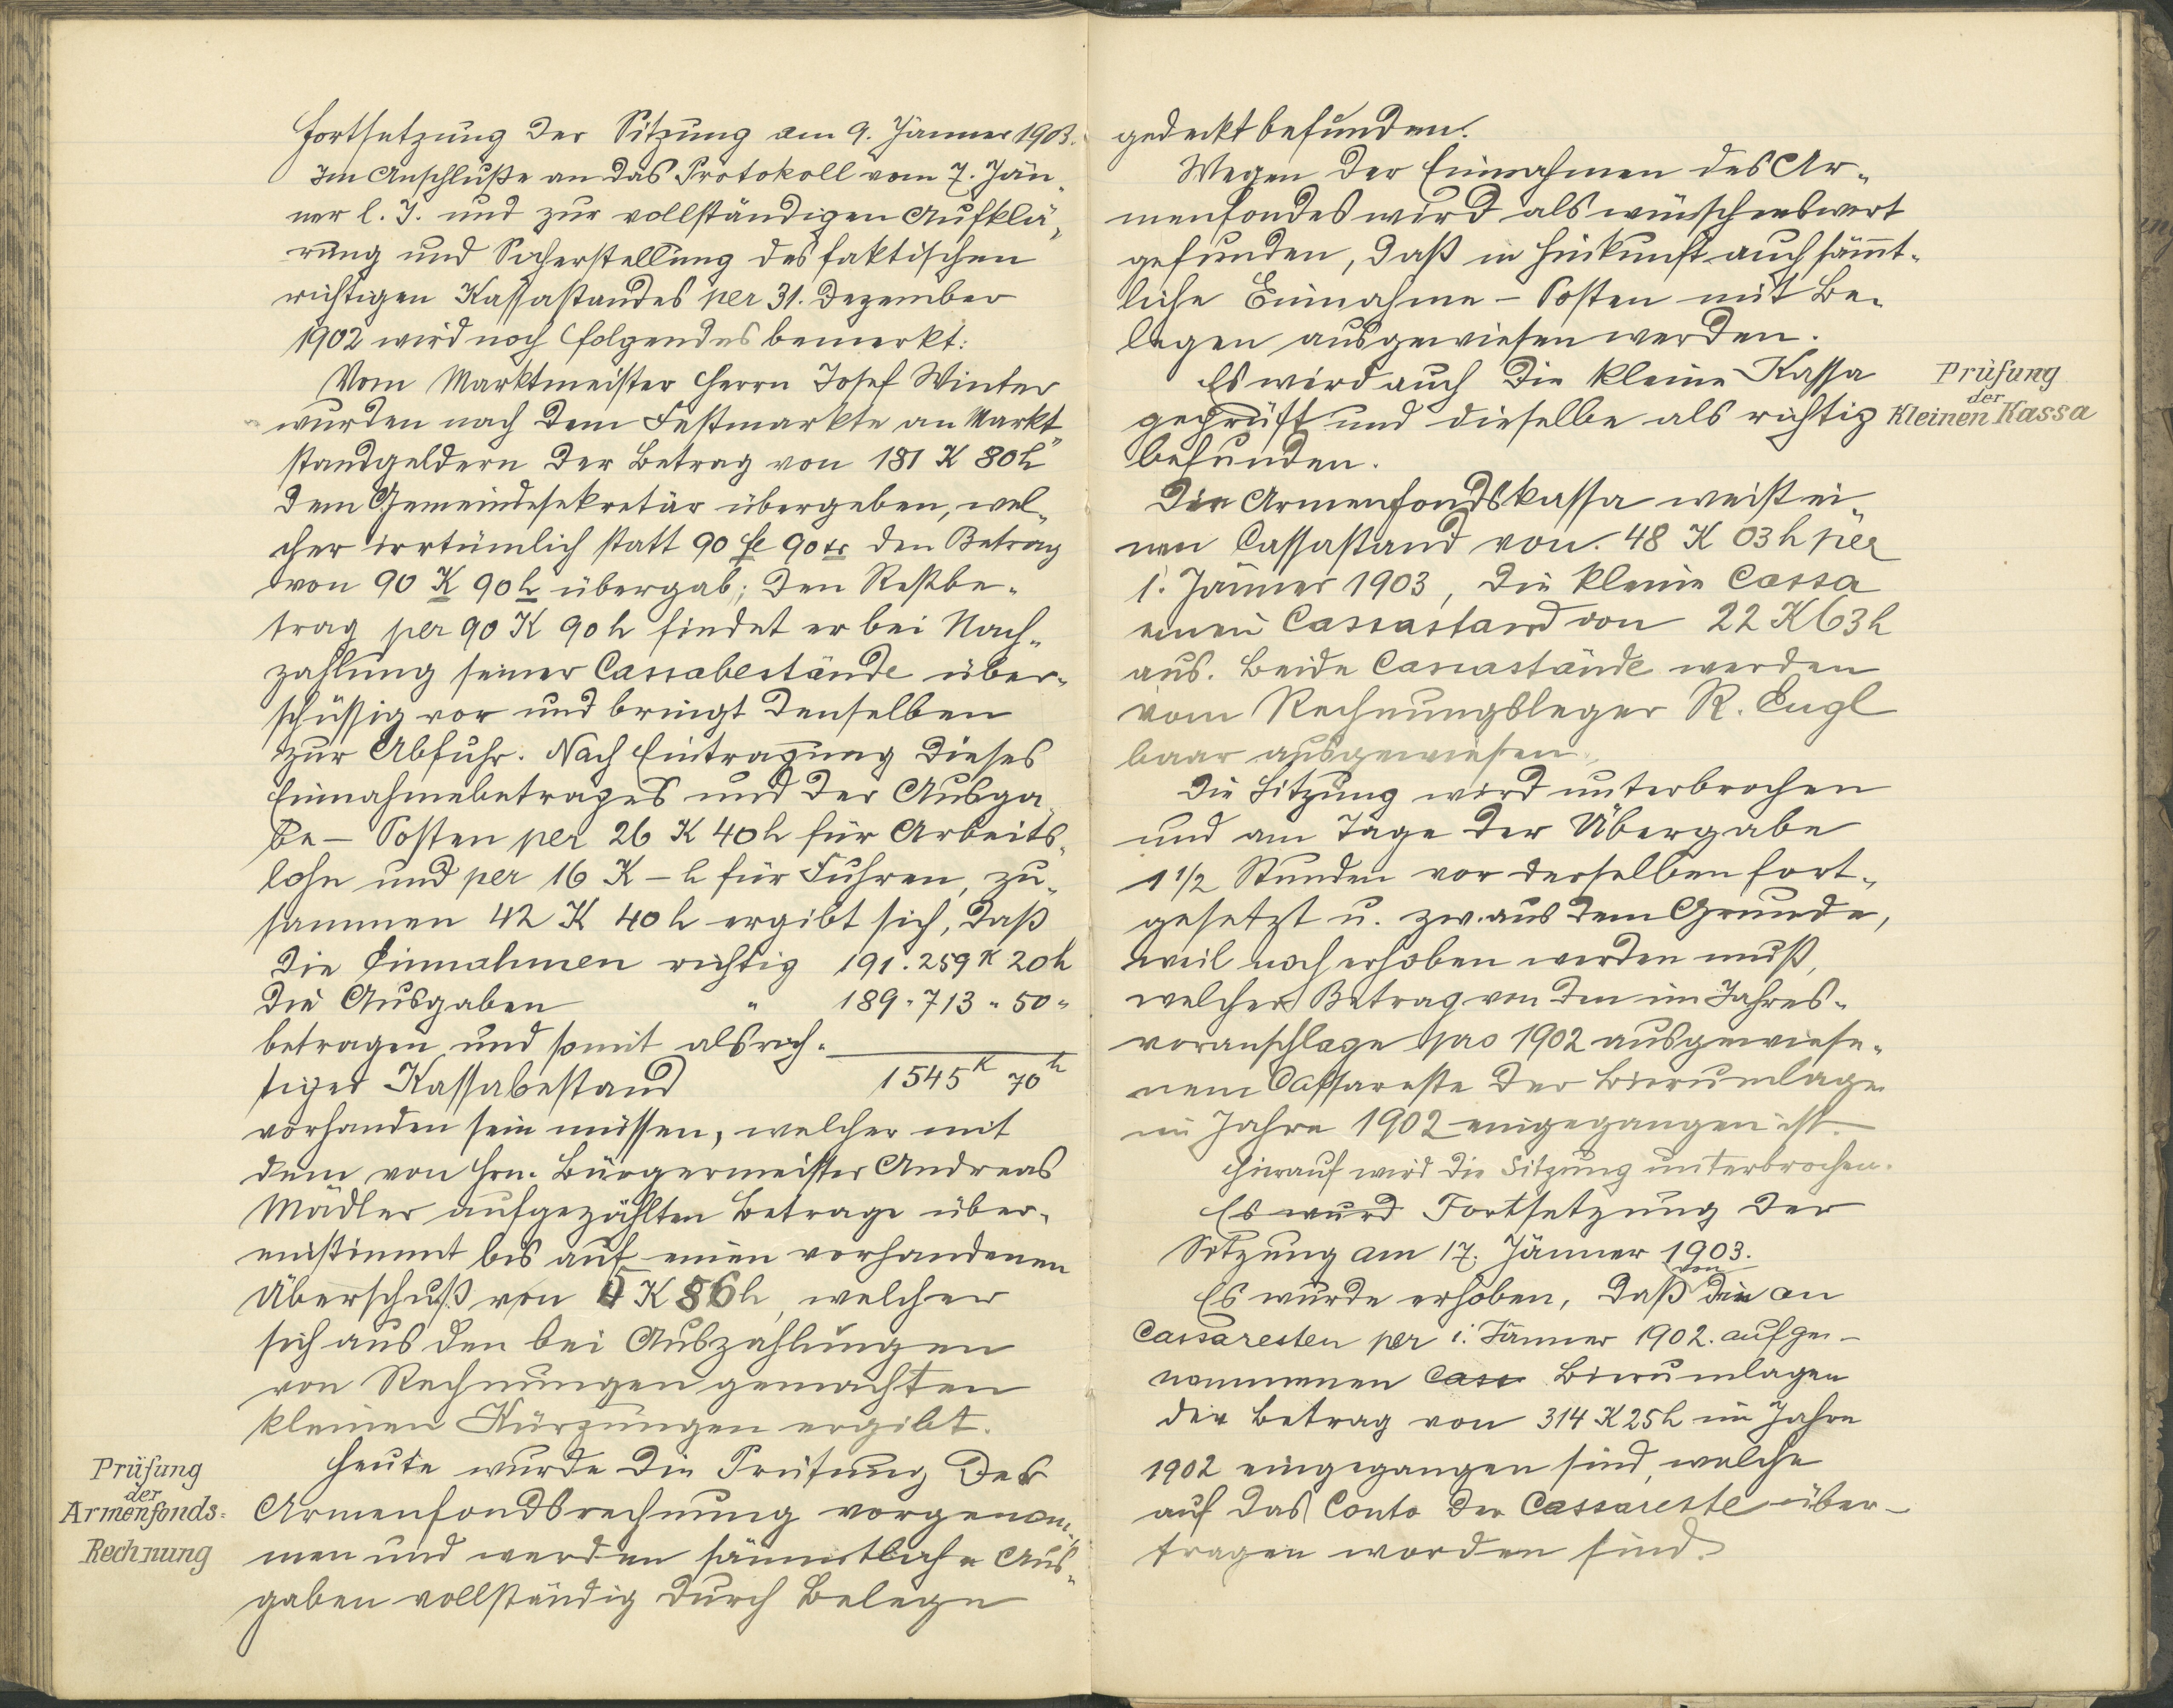 Fortsetzung der Sitzung am 9. Jänner 1903.
Im Anschluße an das Protokoll vom 7. Jän„
ner l. J. und zur vollständigen Aufklä„
rung und Sicherstellung des faktischen
richtigen Kassastandes per 31. Dezember
1902 wird noch folgendes bemerkt:
Vom Marktmeister Herrn Josef Winter
wurden nach dem Festmarkte an Markt„
standgeldern der Betrag von 181 K 80 h
dem Gemeindesekretär übergeben, wel„
cher irrtümlich statt 90 fl 90 kr den Betrag
von 90 K 90 h übergab; den Restbe„
trag per 90 K 90 h findet er bei Nach„
zahlung seiner Cassabestände über„
schüssig vor und bringt denselben
zur Abfuhr. Nach Eintragung dieses
Einnahmebetrages und der Ausga„
be - Posten per 26 K 40 h für Arbeits„
lohn und per 16 K - h für Fuhren, zu„
sammen 42 K 40 h ergibt sich, daß
die Einnahmen richtig 191.259 K 20 h
die Ausgaben " 189.713 " 50 "
betragen und somit als rich„
tiger Kassabestand 1545 K 70 h
vorhanden sein müssen, welcher mit
dem von Hrn. Bürgermeister Andreas
Mädler aufgezählten Betrage über„
einstimmt bis auf einen vorhandenen
Überschuß von 5 K 86 h, welcher
sich aus den bei Auszahlungen
von Rechnungen gemachten
kleinen Kürzungen ergibt.
Prüfung
der
Armenfonds=
Rechnung
Heute wurde die Prüfung der
Armenfondsrechnung vorgenom„
men und werden sämmtliche Aus„
gaben vollständig durch Belege
gedeckt befunden.
Wegen der Einnahmen des Ar„
menfondes wird als wünschenswert
gefunden, daß in Hinkunft auch sämt„
liche Einnahme - Posten mit Be„
legen ausgewiesen werden.
Es wird auch die kleine Kassa
geprüft und dieselbe als richtig
befunden.
Prüfung
der
Kleinen Kassa
Die Armenfondskassa weist ei„
nen Cassastand von 48 K 03 h per
1. Jänner 1903, die kleine Cassa
einen Cassastand von 22 K 63 h
aus. Beide Cassastände werden
vom Rechnungsleger R. Engl
baar ausgewiesen.
Die Sitzung wird unterbrochen
und am Tage der Übergabe
1 1/2 Stunden vor derselben fort„
gesetzt u. zw. aus dem Grunde,
weil noch erhoben werden muß,
welcher Betrag von den im Jahres„
voranschlage pro 1902 ausgewiese„
nem Cassareste der Bierumlage
im Jahre 1902 eingegangen ist.
Hierauf wird die Sitzung unterbrochen.
Es wurd Fortsetzung der
Sitzung am 17. Jänner 1903.
Es wurde erhoben, daß von die an
Cassaresten per 1. Jänner 1902. aufge-
nommenen Cass Bierumlagen
der Betrag von 314 K 25 h im Jahre
1902 eingegangen sind, welche
auf das Conto der Cassareste über-
tragen worden sind.